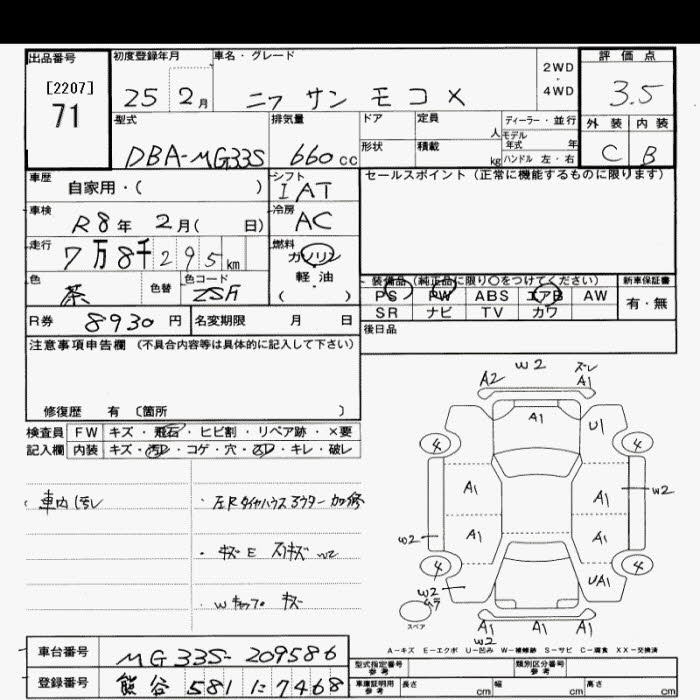 出品番号 初度登録年月 車名・グレード 2WD・4WD 評価点
[2207]
71
25 2月 ニッサン モコ X 3.5
型式 排気量 ドア 定員 人 ディーラー・並行 外装 内装
DBA-MG33S 660cc 形状 積載 kg モデル年式 年 ハンドル 左・右 C B
車歴 自家用・( ) シフト IAT セールスポイント (正常に機能するものに限ります)
車検 R8年 2月( 日) 冷房 AC
走行 7万8千295km 燃料 ガソリン
色 茶 色替 色コード ZSA 軽・油 ( )
装備品 (純正品に限り〇をつけてください) 新車保証書
PS PW ABS エアB AW 有・無
SR ナビ TV カワ
R券 8930円 名変期限 月 日 後日品
注意事項申告欄 (不具合内容等は具体的に記入して下さい)
修復歴 有 〔箇所 〕
検査員 FW キズ・飛石・ヒビ割・リペア跡・×要
記入欄 内装 キズ・汚れ・コゲ・穴・キレ・破レ
車内汚レ
左Rタイヤハウス アウター 加修
・キズE 天キズ W2
・Wキャップ キズ
W2
A2 ズレ A1
A1 U1
4 4
A1 A1 W2
W2 A1 A1
4 4
W2 UA1
スペア A1 W2 A1 A1
A-キズ E-エクボ U-凹み W-補修跡 S-サビ C-腐食 XX-交換済
車台番号 MG33S-209586
登録番号 熊谷 581 に 7468
型式指定番号 参考 類別区分番号 参考
車庫証明用 参考 長さ cm 幅 cm 高さ cm